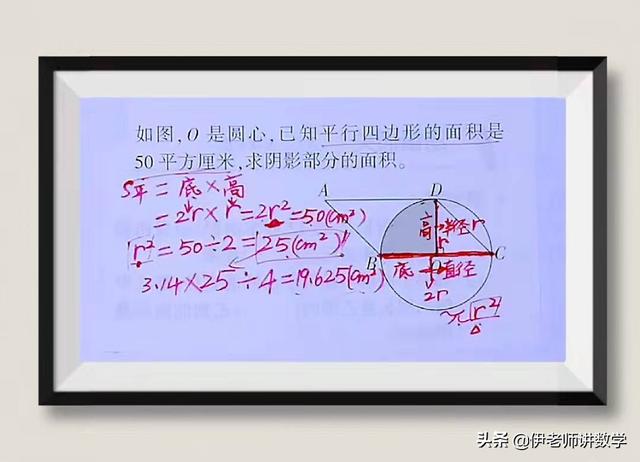 如图,O 是圆心,已知平行四边形的面积是
50 平方厘米,求阴影部分的面积。
S平 = 底 × 高
= 2r × r = 2r² = 50(cm²)
r² = 50 ÷ 2 = 25(cm²)
3.14 × 25 ÷ 4 = 19.625(cm²)
A D
高 半径 r
r
B O C
底 直径
2r
π r²
头条 @伊老师讲数学